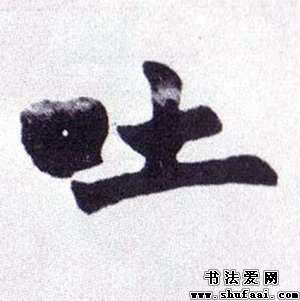 吐
书法爱网
www.shufaai.com